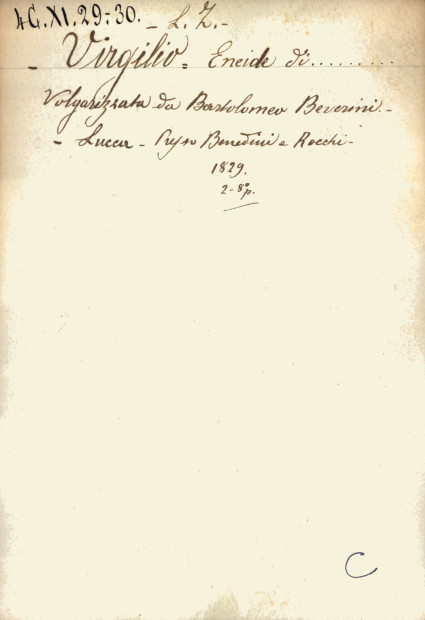 4C.XI.29-30. - L. Z. -
- Virgilio = Eneide di.........
Volgarizzata da Bartolomeo Beverini -
- Lucca - Presso Benedini e Rocchi -
1829.
2-8º p.
C